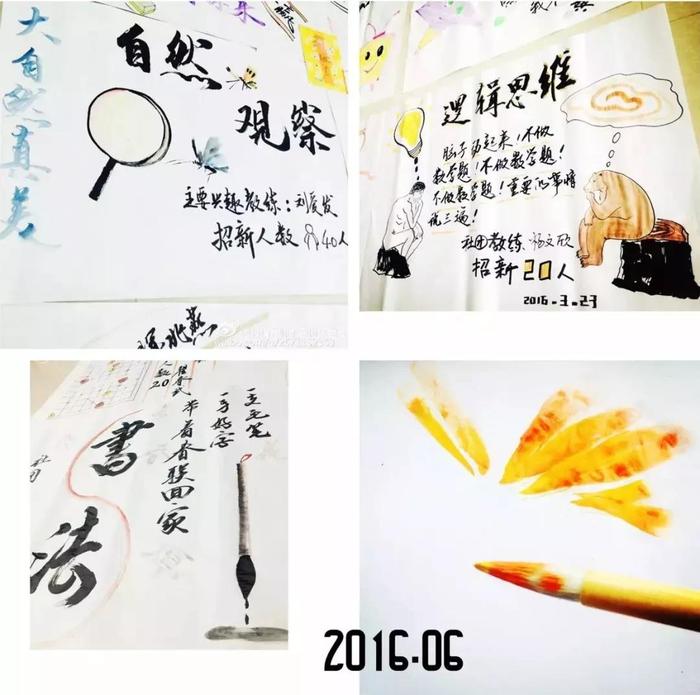 大自然真美
自然
观察
主要兴趣教练：刘爱发
招新人数 40人
逻辑思维
脑子动起来，不做
数学题！不做数学题！
不做数学题！重要的事情
说三遍！
社团教练 杨文欣
招新20人
2016.3.23
書法
一支毛笔
一手好字
带着春联回家
2016.06